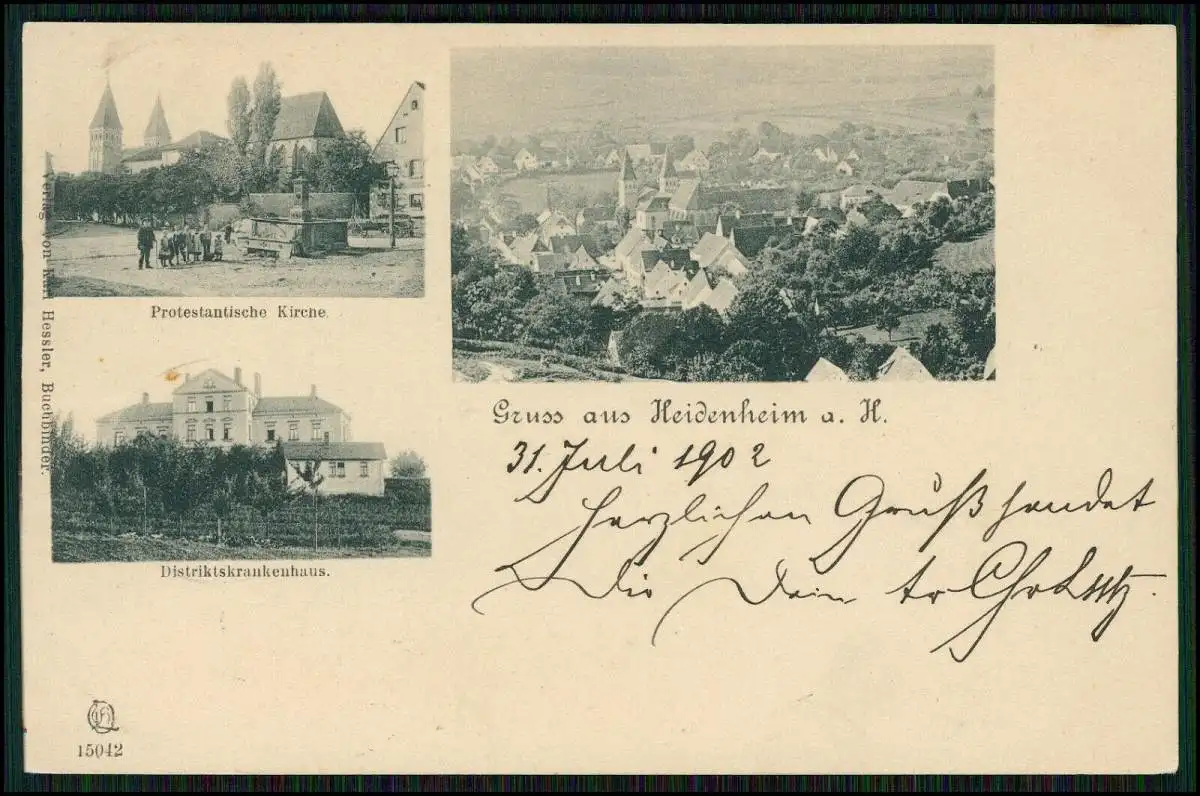 Protestantische Kirche.
Verlag von Karl Hessler, Buchbinder.
Distriktskrankenhaus.
Gruss aus Heidenheim a. H.
31. Juli 1902
Herzlichen Gruß sendet
Dir Dein
15042